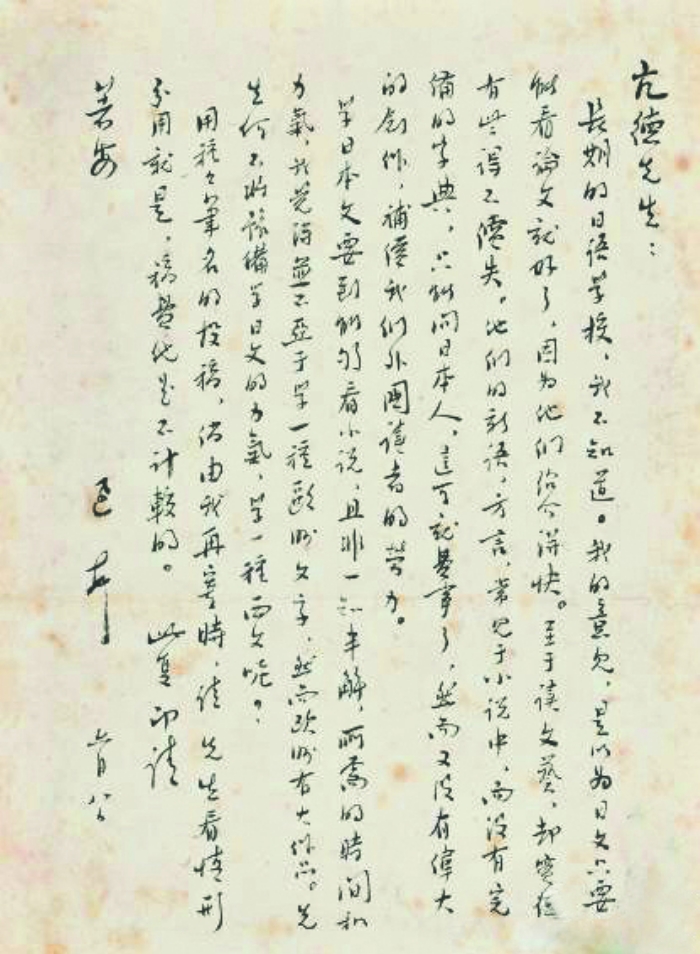 亢德先生：
長期的日语學校，我不知道。我的意見，是以为日文只要
能看論文就好了，因为他们绍介得快。至于讀文藝，却實在
有些得不償失。他们的新语，方言，常見于小说中，而没有完
備的字典，只能问日本人，這可就費事了，然而又没有偉大
的創作，補償我们外國讀者的勞力。
學日本文要到能夠看小说，且非一知半解，所需的時间和
力氣，我覺得並不亞于學一種歐洲文字，然而欧洲有大作品。先
生何不將豫備學日文的力氣，學一種西文呢？
用種々筆名的投稿，倘由我再寄時，请 先生看情形
分用就是，稿費他是不计較的。 此复 即请
著安 迅 上 六月八日